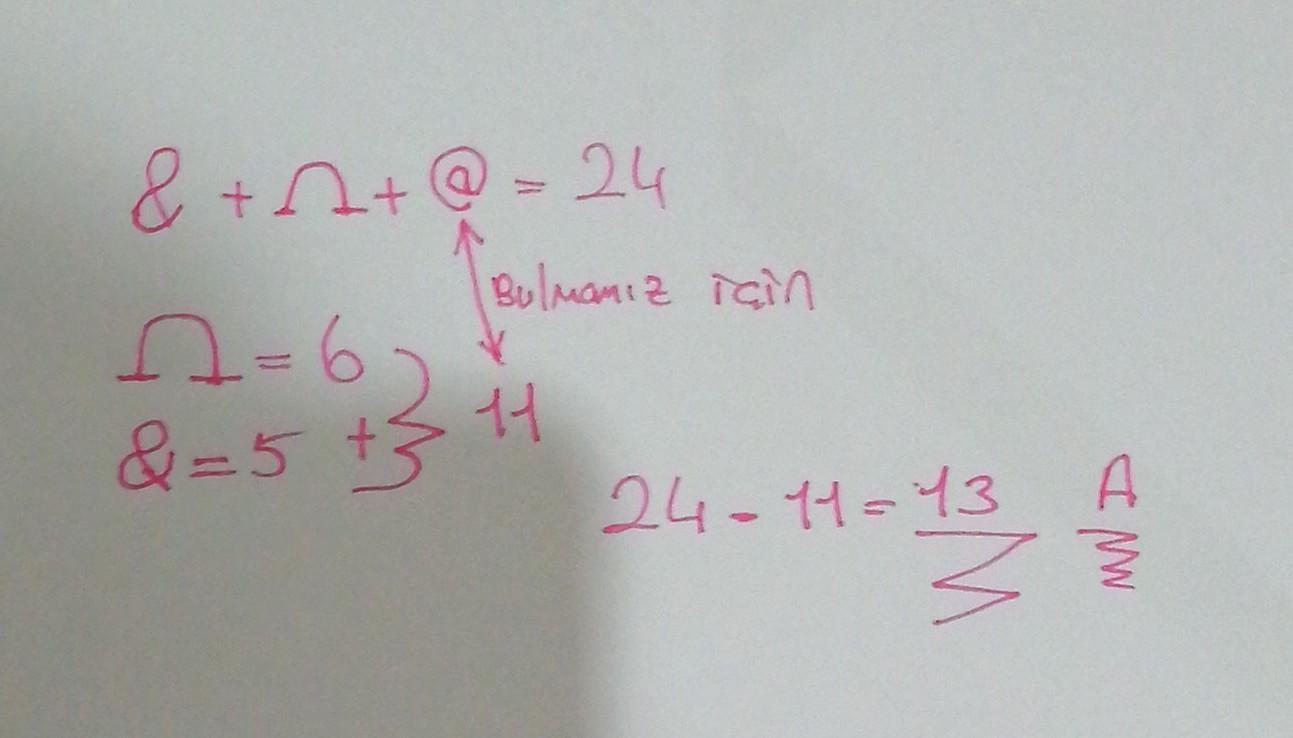 & + Ω + @ = 24
Bulmanız için
Ω = 6
& = 5 + } 11
24 - 11 = 13 A